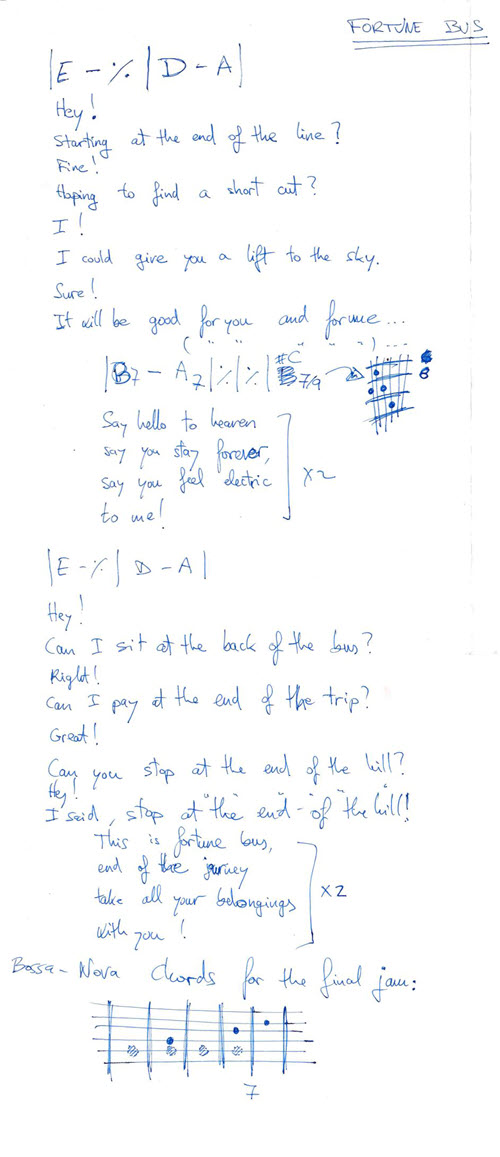 FORTUNE BUS
|E - ٪ | D - A|
Hey!
Starting at the end of the line?
Fine!
Hoping to find a short cut?
I!
I could give you a lift to the sky.
Sure!
It will be good for you and for me...
( " " " " " ) ...
|B7 - A7|٪|٪| #C 7/9
Say hello to heaven
say you stay forever,
say you feel electric
to me!
x2
|E - ٪ | D - A|
Hey!
Can I sit at the back of the bus?
Right!
Can I pay at the end of the trip?
Great!
Can you stop at the end of the hill?
Hey!
I said, stop at "the" end - of "the hill!
This is fortune bus,
end of the journey
take all your belongings
with you!
x2
Bossa-Nova chords for the final jam:
7